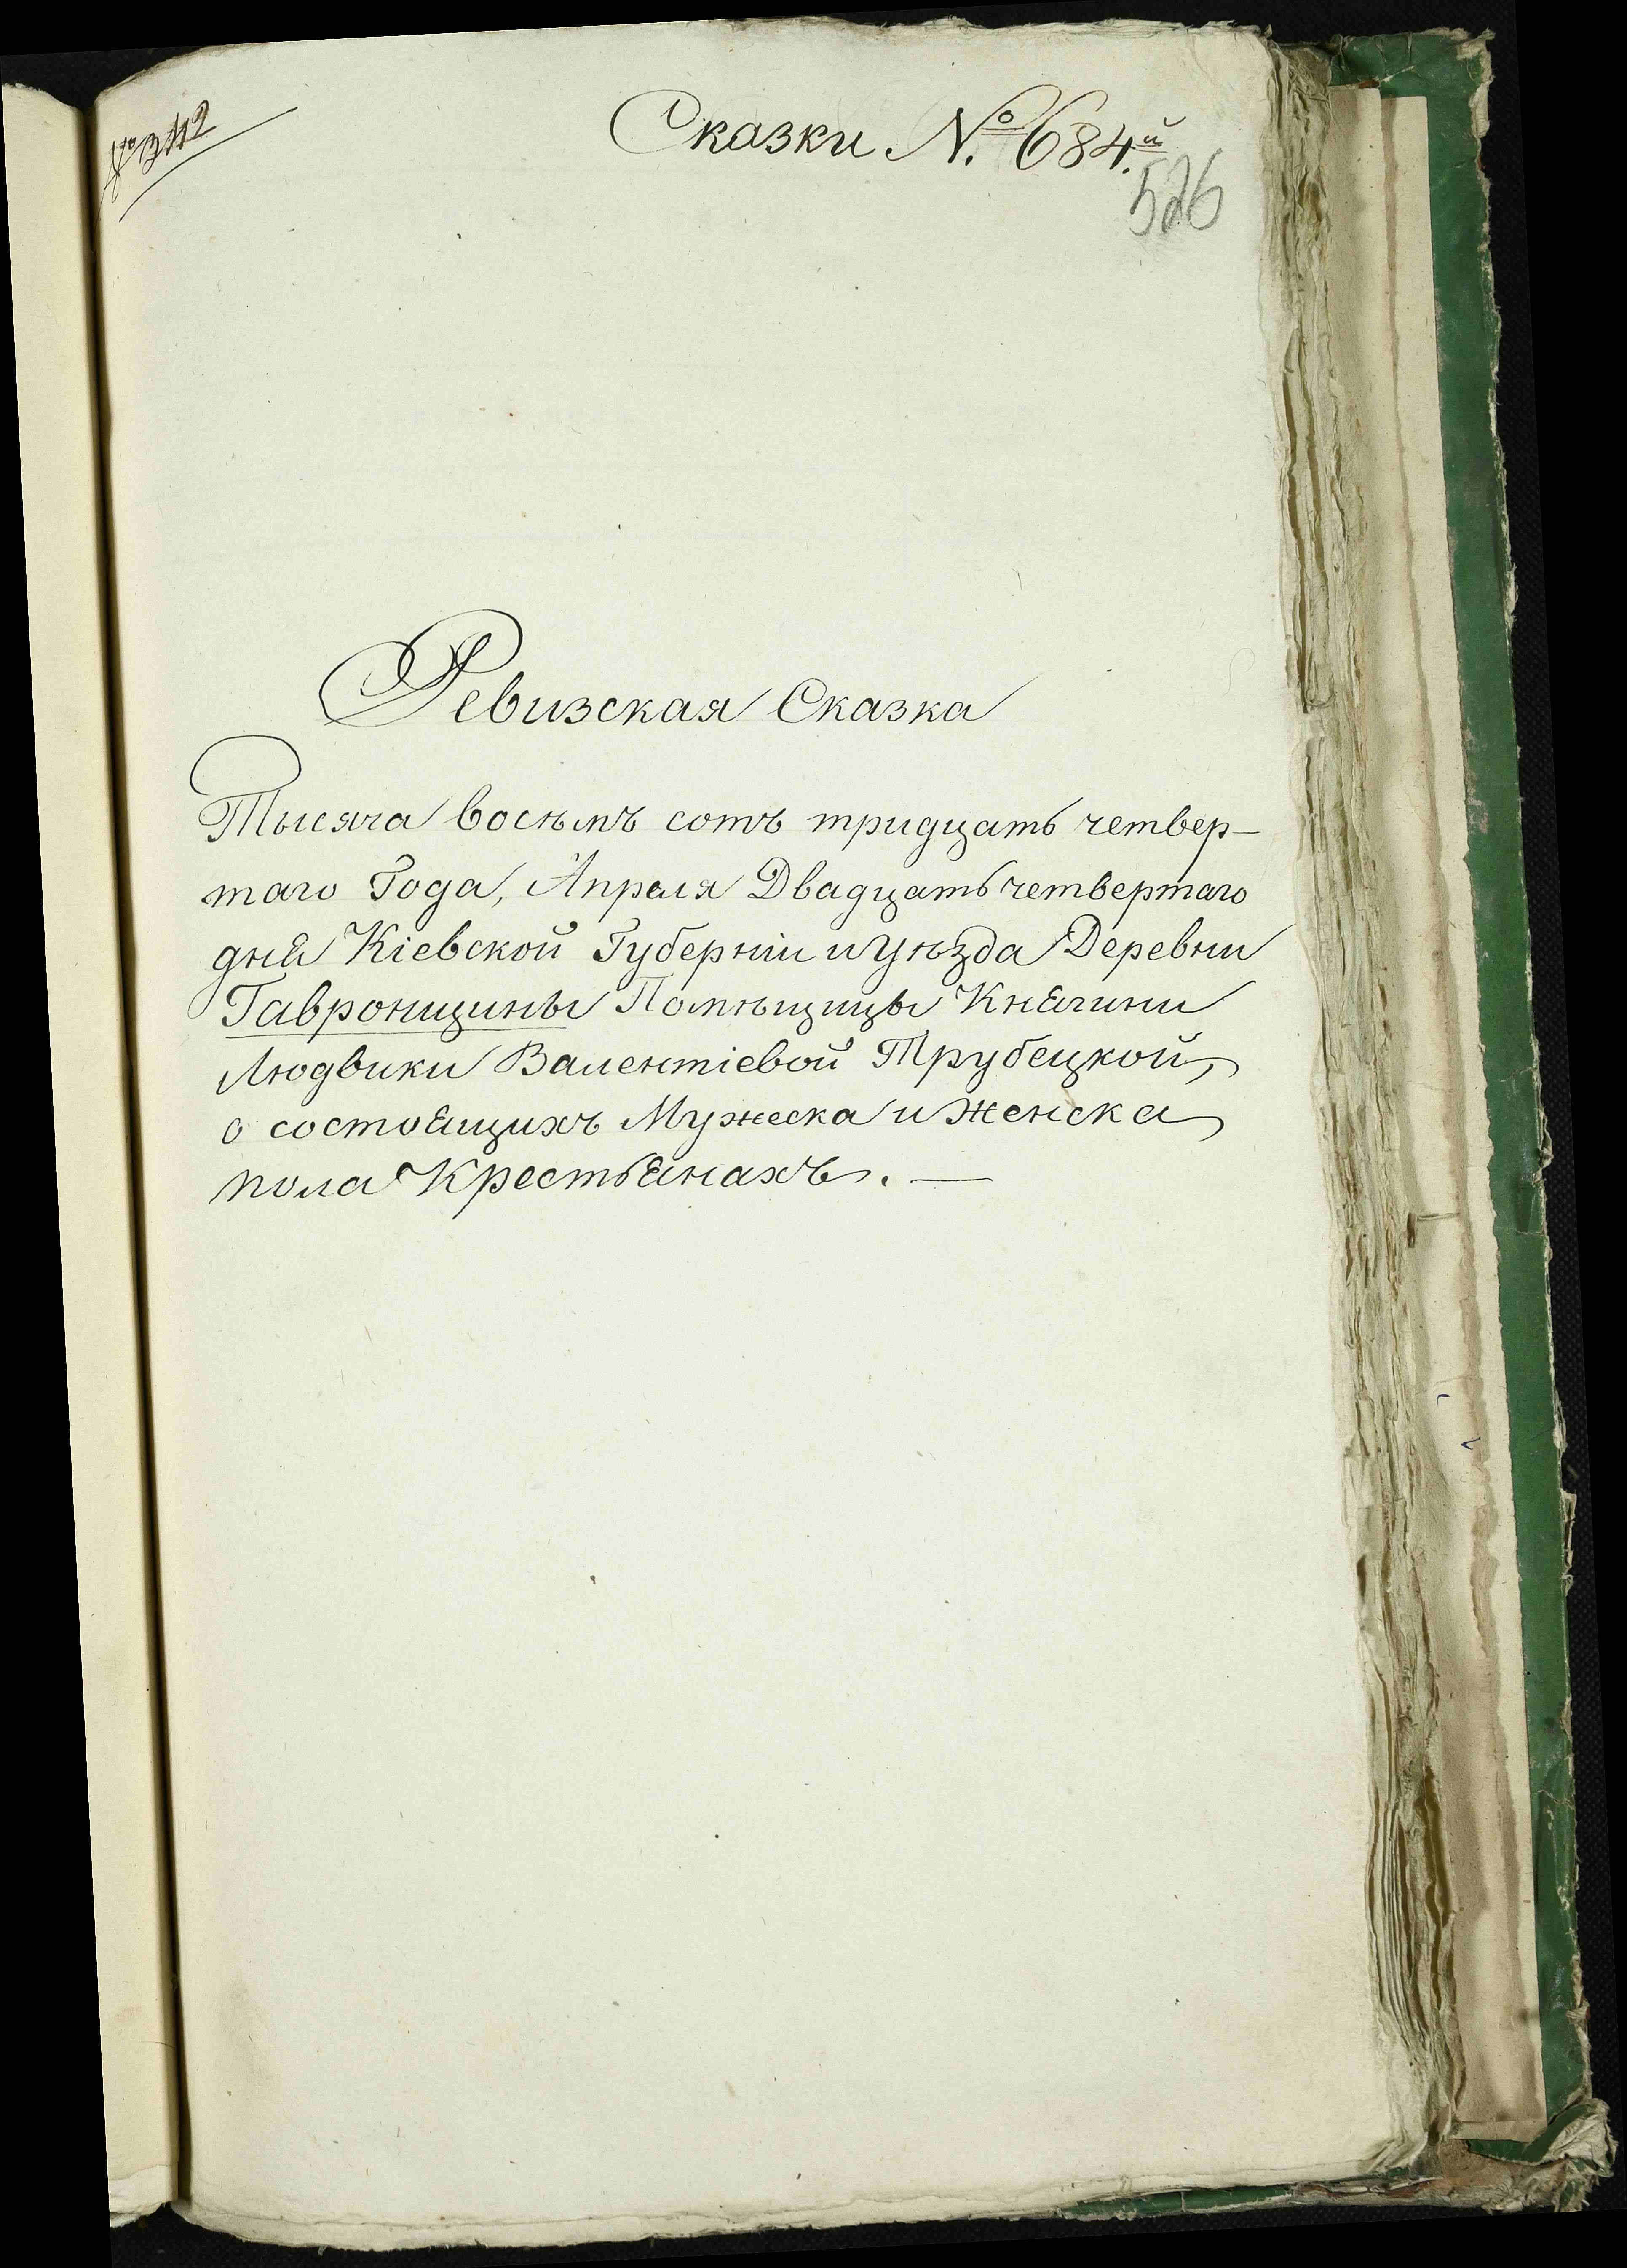 Сказки №. 684.й
526
Ревизская Сказка
Тысяча восѣмъ сотъ тридцать четвер-
таго Года, Апреля Двадцать четвертаго
дня Кіевской Губерніи и Уѣзда Деревни
Гавронщины Помѣщицы Княгини
Людвики Валентіевой Трубецкой,
о состоящихъ Мужеска и Женска
пола Крестьянахъ. —